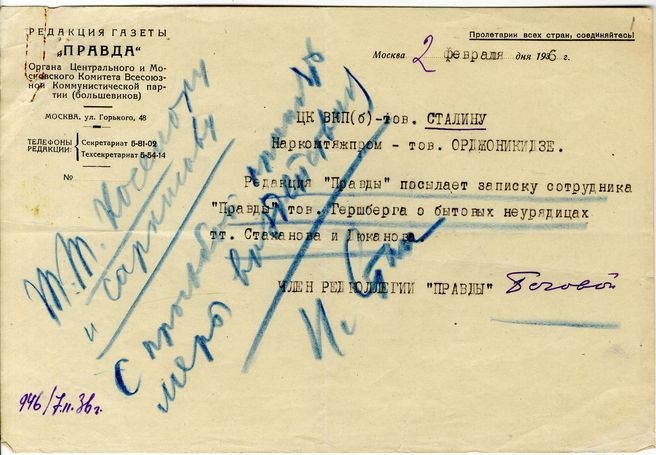 1
РЕДАКЦИЯ ГАЗЕТЫ
„ПРАВДА“
Органа Центрального и Мо-
сковского Комитета Всесоюз-
ной Коммунистической пар-
тии (большевиков)
МОСКВА, ул. Горького, 48
ТЕЛЕФОНЫ РЕДАКЦИИ:
Секретариат 5-81-02
Техсекретариат 5-54-14
№
Пролетарии всех стран, соединяйтесь!
Москва 2 февраля дня 1936 г.
ЦК ВКП(б)-тов. СТАЛИНУ
Наркомтяжпром - тов. ОРДЖОНИКИДЗЕ.
Редакция "Правды" посылает записку сотрудника
"Правды" тов. Гершберга о бытовых неурядицах
тт. Стаханова и Дюканова.
ЧЛЕН РЕДКОЛЛЕГИИ "ПРАВДЫ"
Т.т. Косиору
и Саркисову
С просьбой принять
меры воздействия
И. Ст
946/7.II.36г.